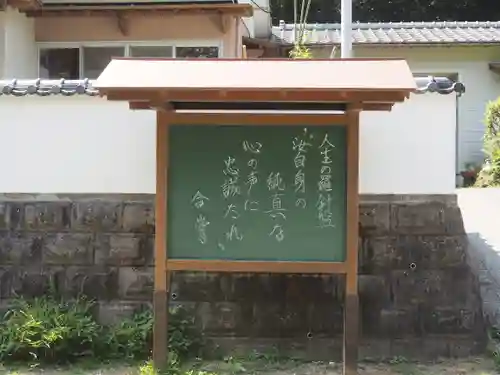 人生の羅針盤
“汝自身の
純真な
心の声に
忠誠たれ”
合掌